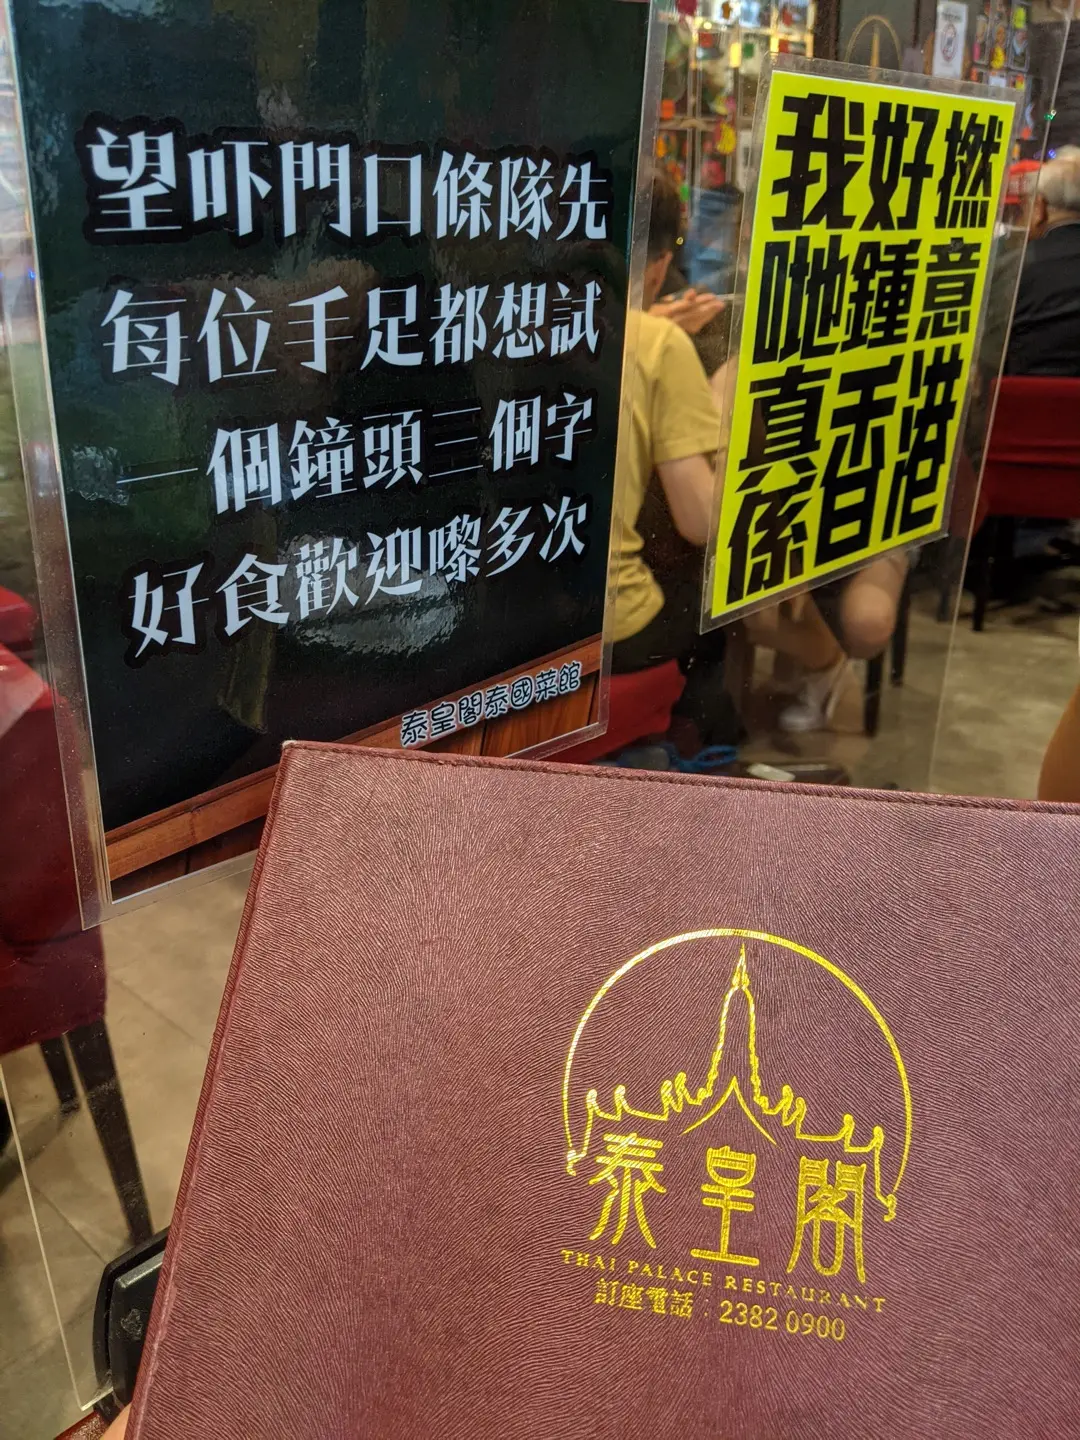 望吓門口條隊先
每位手足都想試
一個鐘頭三個字
好食歡迎嚟多次
泰皇閣泰國菜館
我好撚
哋鍾意
真香港
係
泰皇閣
THAI PALACE RESTAURANT
訂座電話：2382 0900